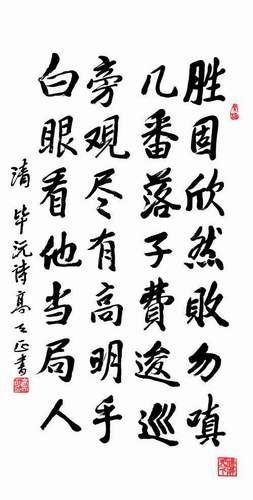 胜固欣然败勿嗔
几番落子费逡巡
旁观尽有高明手
白眼看他当局人
清 毕沅诗 高
正书